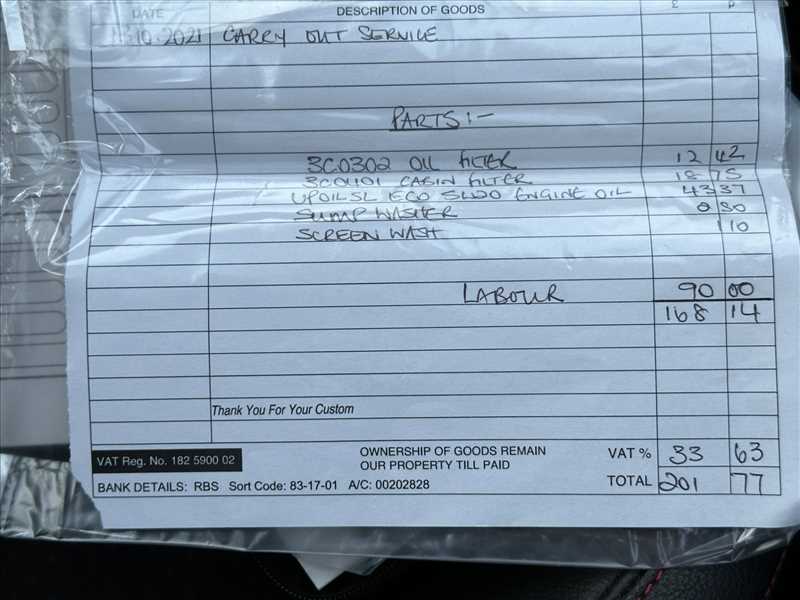 DATE DESCRIPTION OF GOODS £ p
10.2021 CARRY OUT SERVICE
PARTS:-
3C0302 OIL FILTER 12 42
3C0401 CABIN FILTER 18 75
UPOIL5L ECO 5W20 ENGINE OIL 43 37
SUMP WASHER 0 50
SCREEN WASH 1 10
LABOUR 90 00
168 14
Thank You For Your Custom
VAT Reg. No. 182 5900 02 OWNERSHIP OF GOODS REMAIN VAT % 33 63
OUR PROPERTY TILL PAID
BANK DETAILS: RBS Sort Code: 83-17-01 A/C: 00202828 TOTAL 201 77